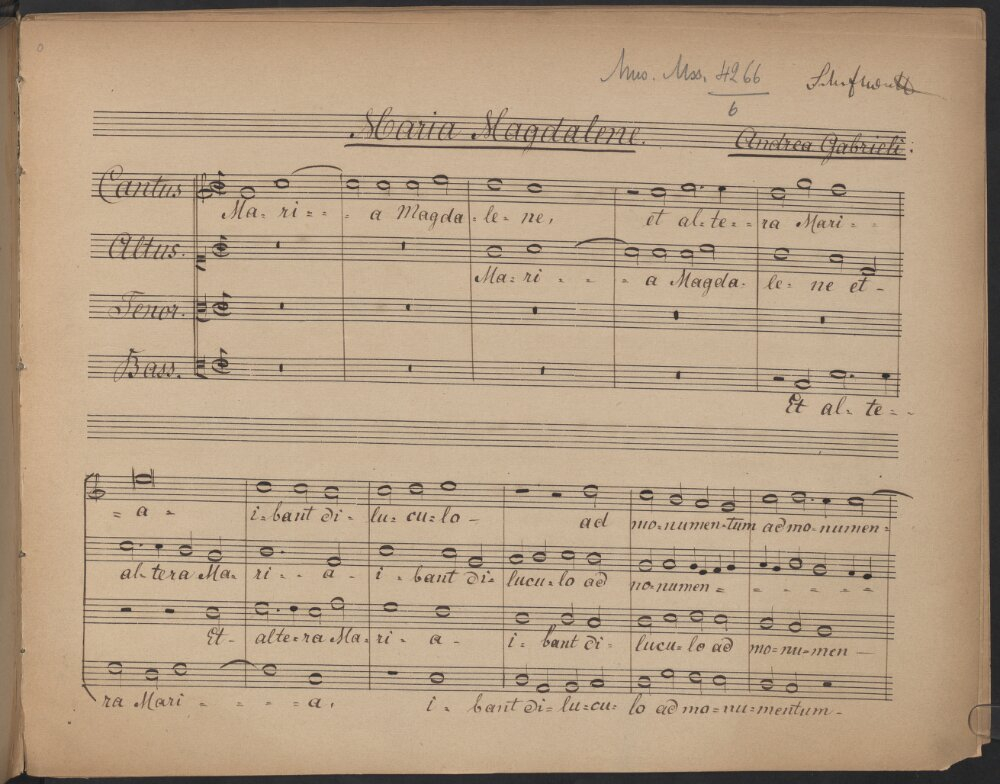 Mus. Mss. 4266
6
Maria Magdalene.
Andrea Gabrieli.
Cantus
Ma = ri = = = a Magda = le = ne, et al = te = = ra Mari = =
Altus.
Ma = ri = = = a Magda = le = ne et -
Tenor.
Bass.
Et al = te = =
= a = i = bant di = lu = cu = lo - ad mo = numen = tum ad mo = numen =
al = tera Ma = ri = = a = i = bant di = lucu = lo ad mo = numen = = = = = =
Et - alte = ra Ma = ri = a - i = bant di = lucu = lo ad mo = nu = men -
ra Mari = = = = a, i = bant di = lu = cu = lo ad mo = nu = mentum -